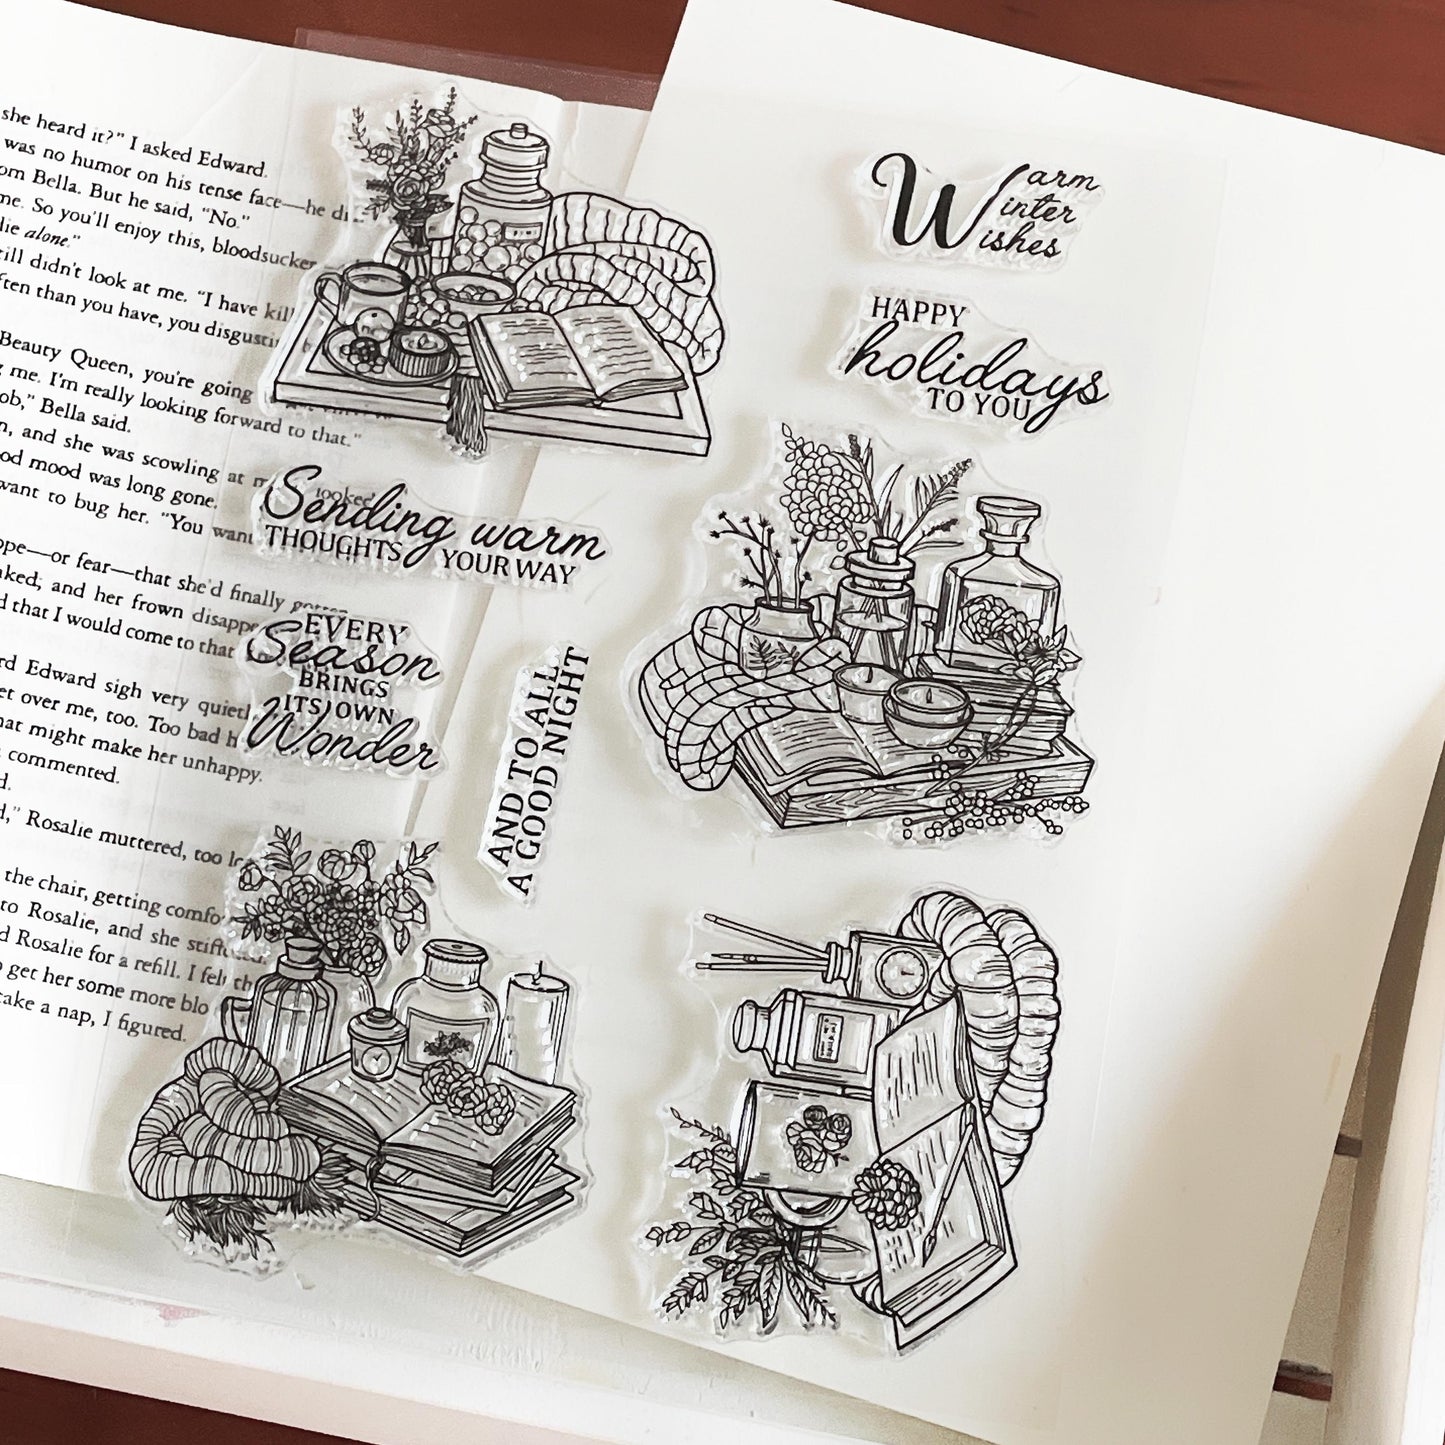 she heard it?" I asked Edward.
was no humor on his tense face—he di
om Bella. But he said, "No."
me. So you'll enjoy this, bloodsucker
die alone."
till didn't look at me. "I have kill
ften than you have, you disgustin
Beauty Queen, you're going
g me. I'm really looking forward to that."
ob," Bella said.
n, and she was scowling at m looked
od mood was long gone.
want to bug her. "You want
ope—or fear—that she'd finally gotten
ked; and her frown disappe
d that I would come to that
rd Edward sigh very quietl
et over me, too. Too bad h
hat might make her unhappy.
commented.
d.
d," Rosalie muttered, too lo
the chair, getting comfo
to Rosalie, and she stiffened.
d Rosalie for a refill. I felt th
o get her some more blo
take a nap, I figured.
Sending warm
THOUGHTS YOUR WAY
EVERY
Season
BRINGS
ITS OWN
Wonder
AND TO ALL
A GOOD NIGHT
Warm
Winter
Wishes
HAPPY
holidays
TO YOU